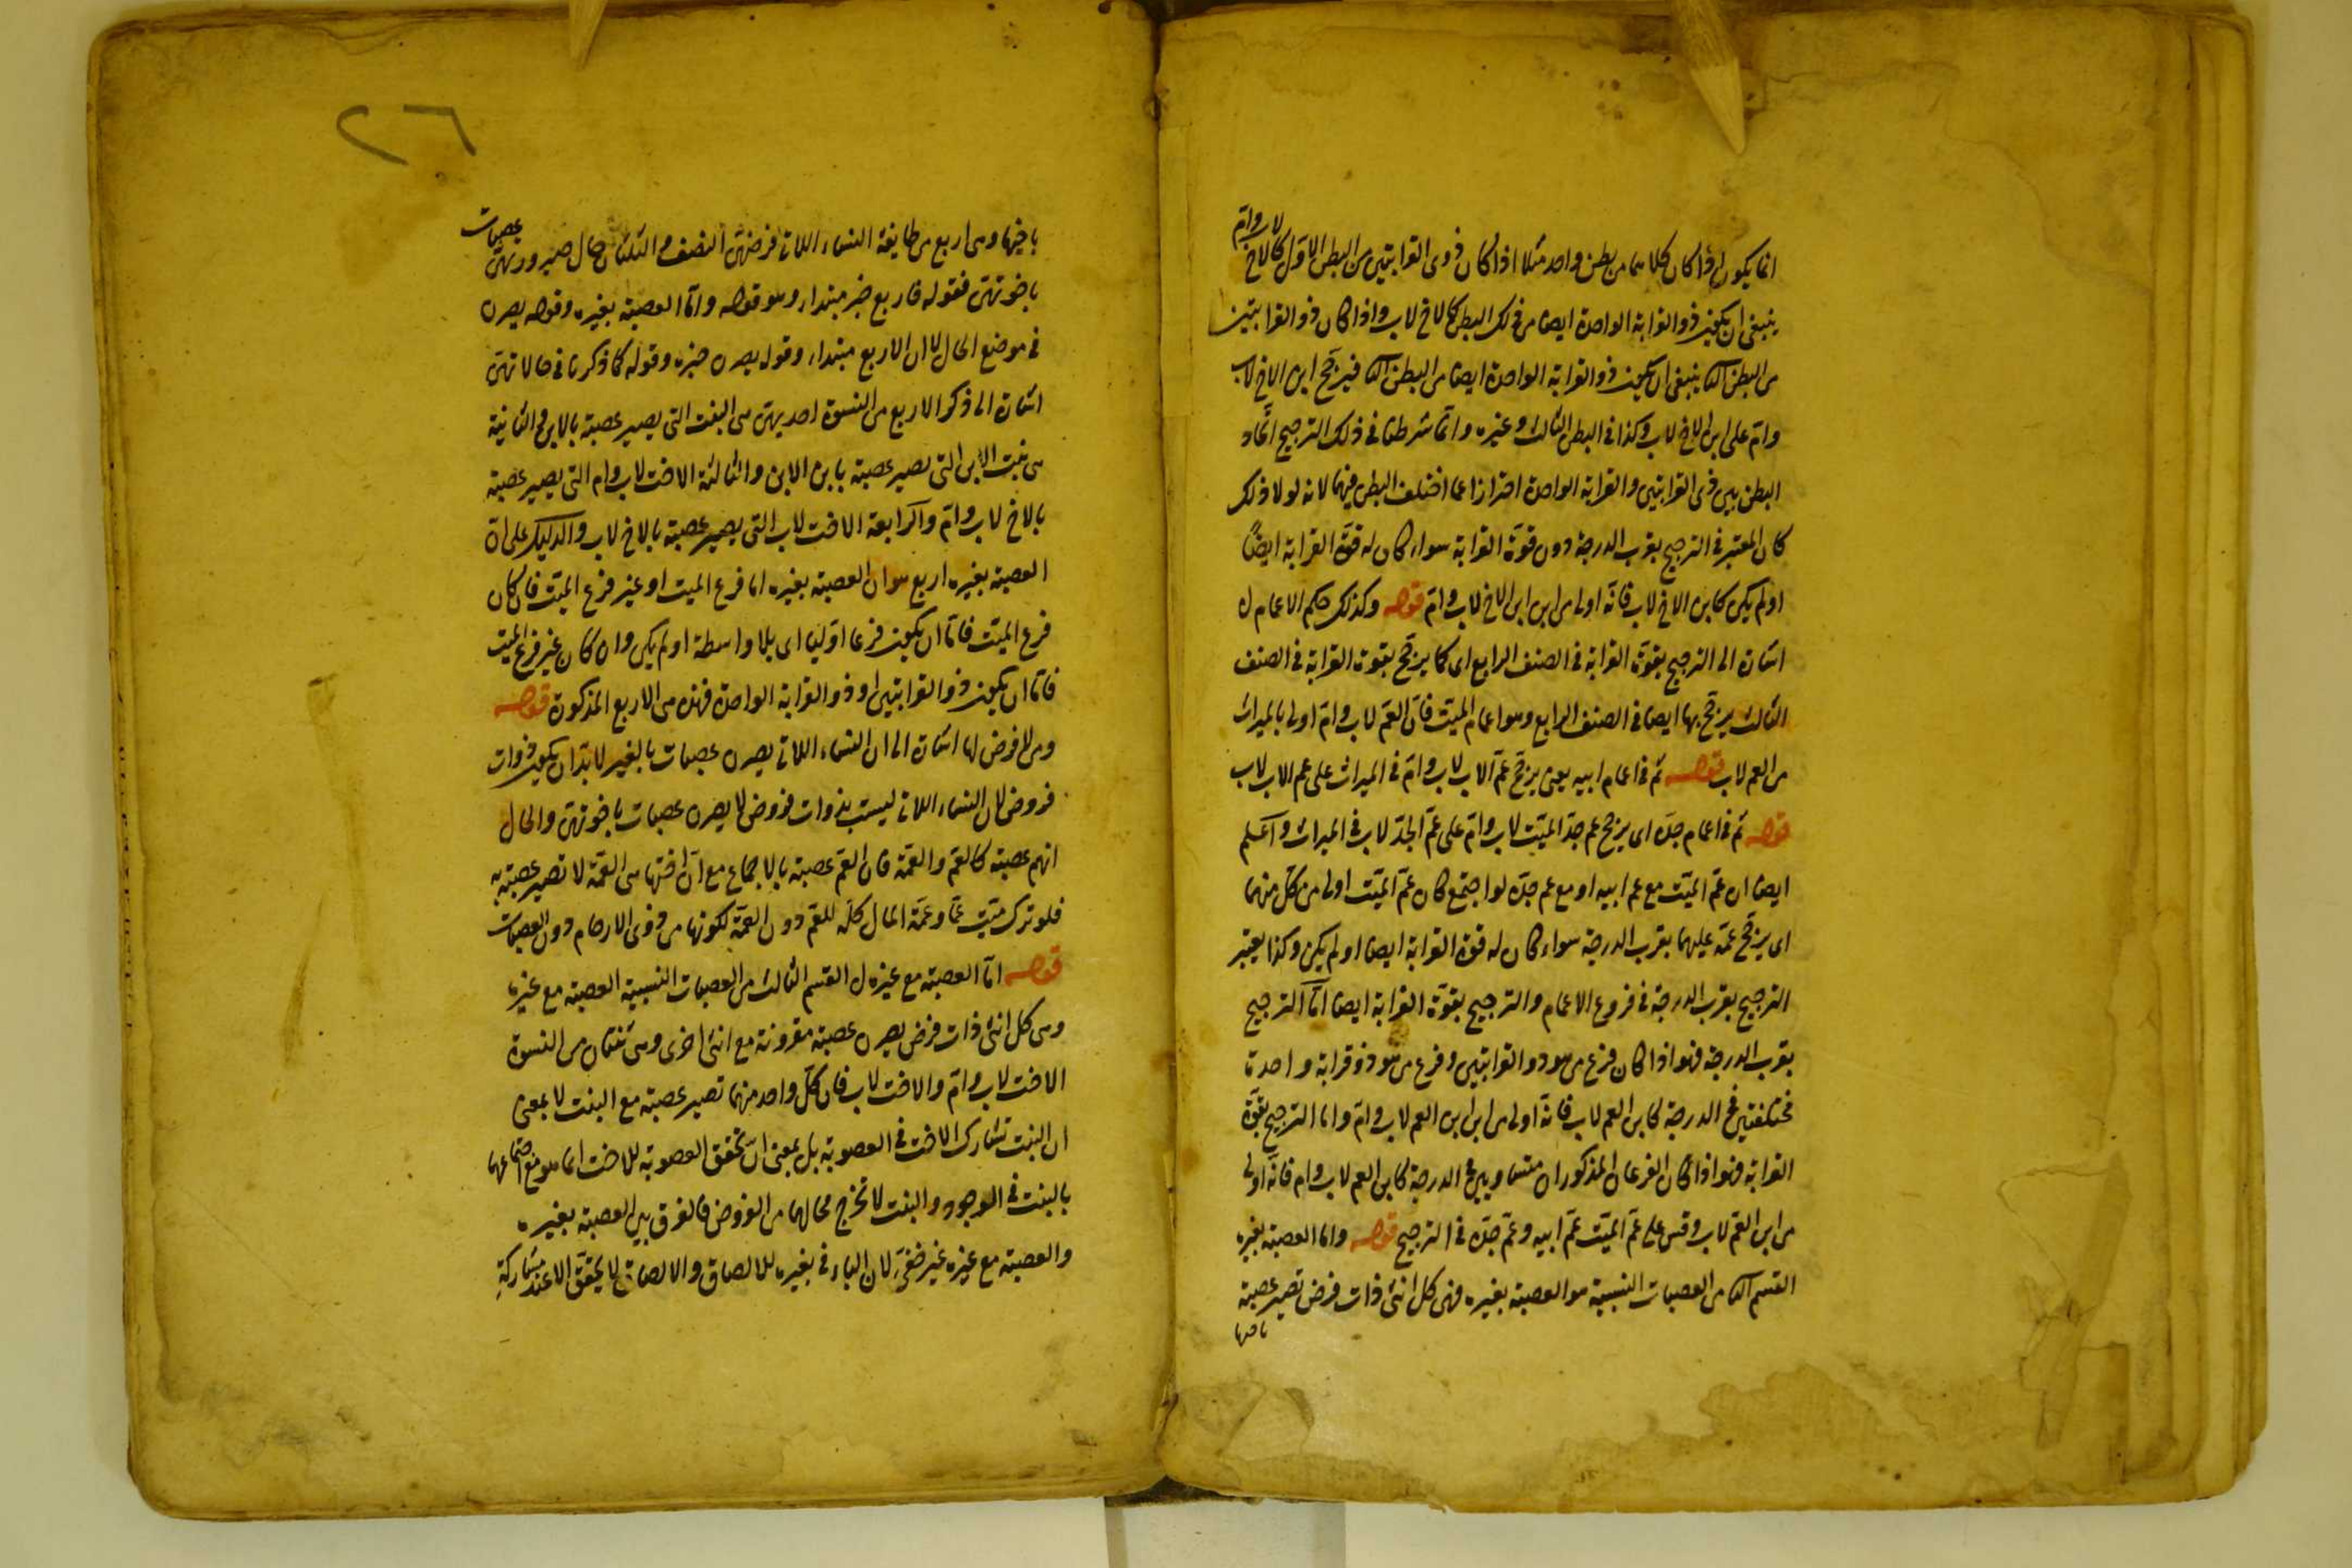 انما يكون اذا كان كلاهما من بطن واحد مثلا اذا كان ذوى القرابتين من البطن الاول كالاخ لاب وام
ينبغى ان يكون ذو القرابة الواحدة ايضا من ذلك البطن كالاخ لاب واذا كان ذو القرابتين
من البطن الثا ينبغى ان يكون ذو القرابة الواحدة ايضا من البطن الثا فيرجح ابن الاخ لاب
وام على ابن الاخ لاب وكذا فى البطن الثالث وغيره وانما شرطنا فى ذلك الترجيح اتحاد
البطن بين ذى القرابتين والقرابة الواحدة احترازا عما اختلف البطن فيهما لانه لولا ذلك
كان المعتبر فى الترجيح بقرب الدرجة دون قوة القرابة سواء كان له قوة القرابة ايضا
اولم يكن كابن الاخ لاب فانه اولى من ابن ابن الاخ لاب وام قوله وكذلك حكم الاعمام ل
اشارة الى الترجيح بقوة القرابة فى الصنف الرابع اى كما يرجح بقوة القرابة فى الصنف
الثالث يرجح بها ايضا فى الصنف الرابع وهو اعمام الميت فان العم لاب وام اولى بالميراث
من العم لاب قوله ثم فى اعمام ابيه يعنى يرجح عم الاب لاب وام فى الميراث على عم الاب لاب
قوله ثم فى اعمام جده اى يرجح عم جد الميت لاب وام على عم الجد لاب فى الميراث واعلم
ايضا ان عم الميت مع عم ابيه او مع عم جده لو اجتمع كان عم الميت اولى من كل منهما
اى يرجح عمه عليهما بقرب الدرجة سواء كان له قوة القرابة ايضا اولم يكن وكذا يعتبر
الترجيح بقرب الدرجة فى فروع الاعمام والترجيح بقوة القرابة ايضا اما الترجيح
بقرب الدرجة فهو اذا كان فرع من هو ذو القرابتين وفرع من هو ذو قرابة واحدة
مختلفتين فى الدرجة كابن العم لاب فانه اولى من ابن ابن العم لاب وام واما الترجيح بقوة
القرابة فهو اذا كان الفرعان المذكوران متساويين فى الدرجة كابن العم لاب وام فانه اولى
من ابن العم لاب وقس على عم الميت عم ابيه وعم جده فى الترجيح قوله واما العصبة بغيره
القسم الثا من العصبات النسبية هو العصبة بغيره فهى كل انثى ذات فرض تصير عصبة
باخيها
٢٦
باخيها وهى اربع من طايفة النساء اللاتى فرضهن النصف والثلثان حال صيرورتهن عصبات
باخوتهن فقوله فاربع خبر مبتداء وهو قوله واما العصبة بغيره وقوله يصرن
فى موضع الحال لا ان الاربع مبتداء وقوله يصرن خبره وقوله كما ذكرنا فى حالاتهن
اشارة الى ذكر الاربع من النسوة احديهن هى البنت التى يصير عصبة بالابن والثانية
هى بنت الابن التى تصير عصبة بابن الابن والثالثة الاخت لاب وام التى يصير عصبة
بالاخ لاب وام والرابعة الاخت لاب التى يصير عصبة بالاخ لاب والدليل على ان
العصبة بغيره اربع هو ان العصبة بغيره اما فرع الميت او غير فرع الميت فان كان
فرع الميت فاما ان يكون فرعا اوليا اى بلا واسطة اولم يكن وان كان غير فرع الميت
فاما ان يكون ذو القرابتين او ذو القرابة الواحدة فهذه هى الاربع المذكورة قوله
ومن لا فرض لها اشارة الى ان النساء اللاتى يصرن عصبات بالغير لا بد ان يكون ذوات
فروض لان النساء اللاتى ليست بذوات فروض لا يصرن عصبات باخوتهن والحال
انهم عصبة كالعم والعمة فان العم عصبة بالاجماع مع ان اختها هى العمة لا تصير عصبة به
فلو ترك ميت عما وعمة المال كله للعم دون العمة لكونها من ذوى الارحام دون العصبات
قوله اما العصبة مع غيره ل القسم الثالث من العصبات النسبية العصبة مع غيره
وهى كل انثى ذات فرض يصرن عصبة مقرونة مع انثى اخرى وهى ثنتان من النسوة
الاخت لاب وام والاخت لاب فان كل واحد منهما تصير عصبة مع البنت لا بمعنى
ان البنت تشارك الاخت فى العصوبة بل بمعنى ان تحقق العصوبة للاخت انما هو مع اجتماعهما
بالبنت فى الوجود والبنت لا تخرج بحالها من الفروض فالفرق بين العصبة بغيره
والعصبة مع غيره غير خفى لان الباء فى بغيره للالصاق والالصاق لا يتحقق الا عند مشاركة